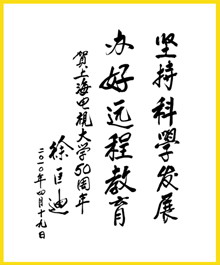 坚持科學发展
办好远程教育
贺上海电视大学50周年
徐匡迪
二〇一〇年四月十九日